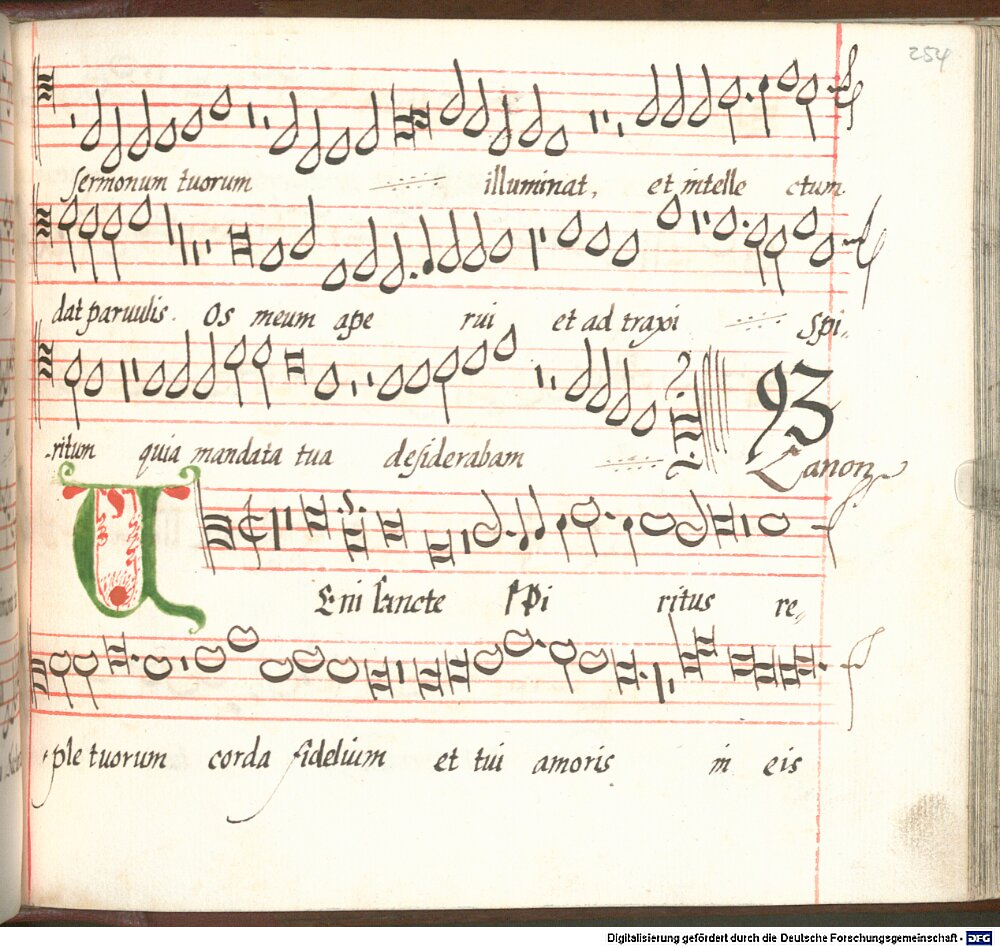 254
sermonum tuorum illuminat, et intelle ctum
dat paruulis. Os meum ape rui et ad traxi Spi-
-ritum quia mandata tua desiderabam
Canon
VEni sancte sPi ritus re-
-ple tuorum corda fidelium et tui amoris in eis
Digitalisierung gefördert durch die Deutsche Forschungsgemeinschaft - DFG